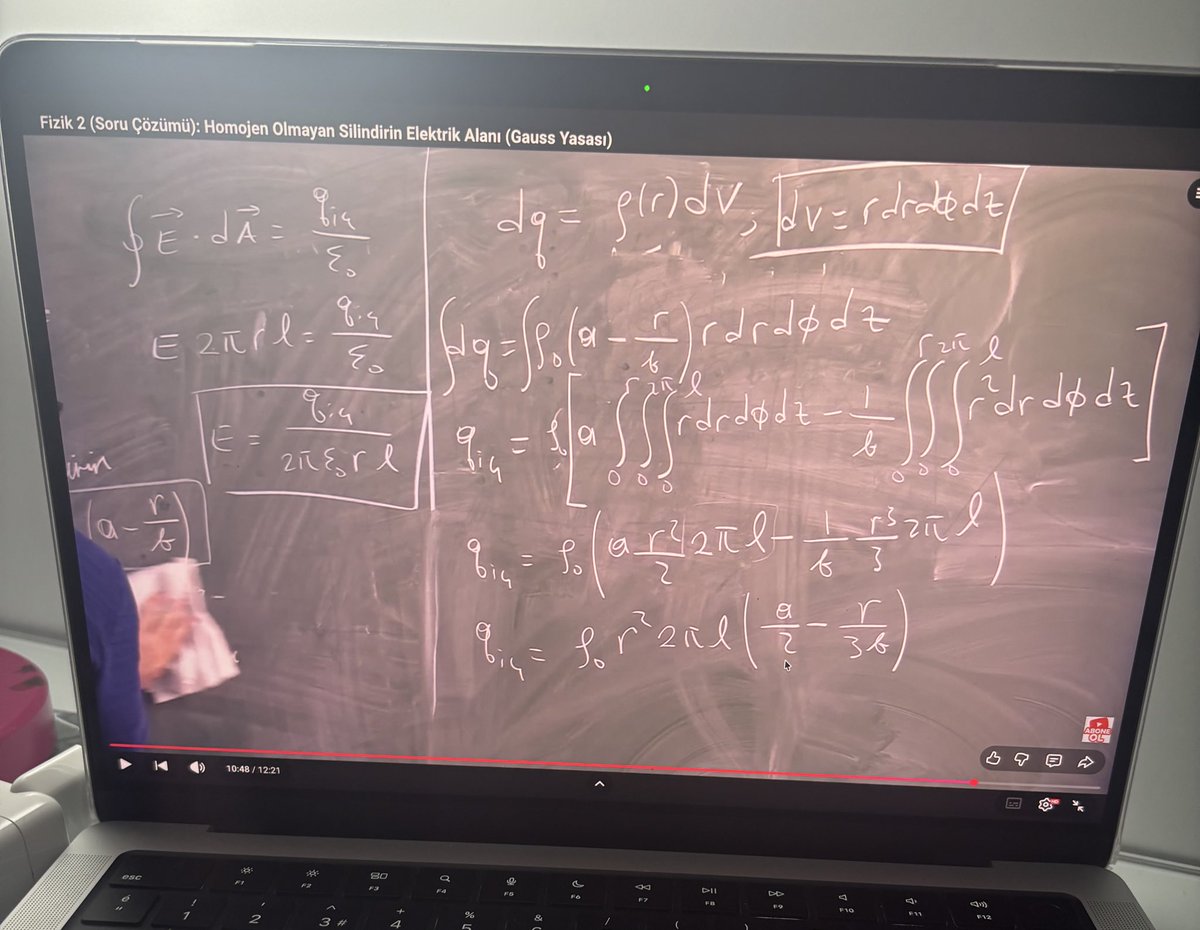 Fizik 2 (Soru Çözümü): Homojen Olmayan Silindirin Elektrik Alanı (Gauss Yasası)
∮ E⃗ · dA⃗ = qiç / ε₀
E 2πrl = qiç / ε₀
E = qiç / 2πε₀rl
(a − r/b)
dq = ρ(r)dV, dV = r dr dϕ dz
∫dq = ∫ρ₀(a − r/b) r dr dϕ dz
qiç = ρ₀[a ∫₀^r ∫₀^2π ∫₀^l r dr dϕ dz − 1/b ∫₀^r ∫₀^2π ∫₀^l r² dr dϕ dz]
qiç = ρ₀(a r²/2 2πl − 1/b r³/3 2πl)
qiç = ρ₀ r² 2πl (a/2 − r/3b)
ABONE
OL
10:48 / 12:21
HD
esc
F1
F2
F3
F4
F5
F6
F7
F8
F9
F10
F11
F12
é
"
!
1
2
^
3 #
+
4
%
5
&
/
(